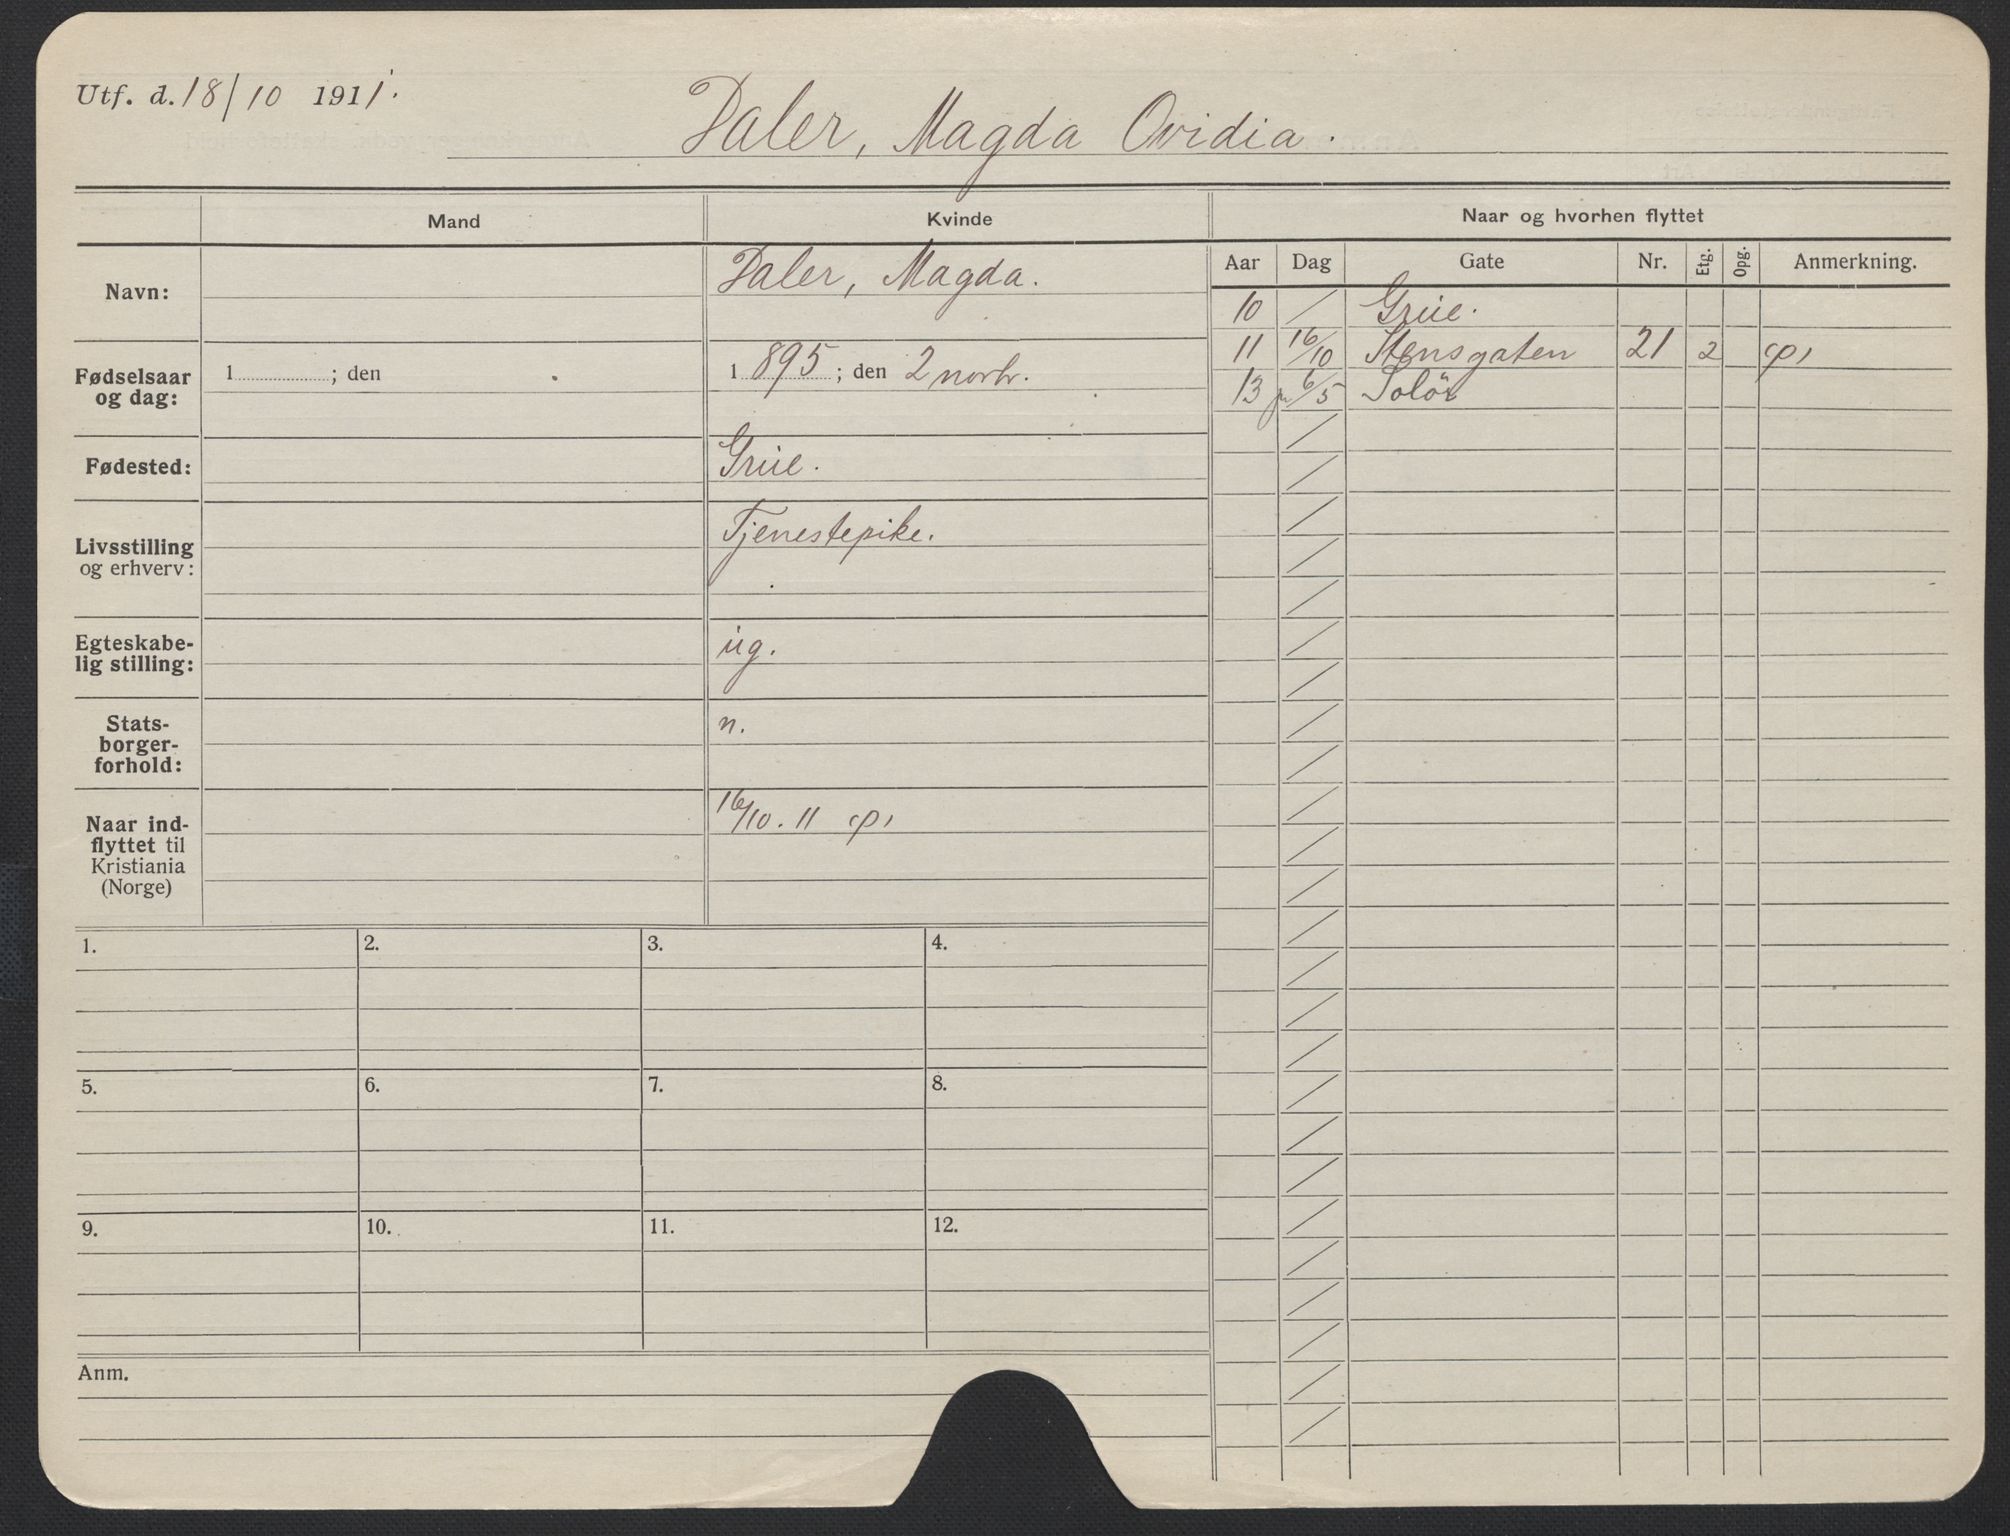 Utf. d. 18/10 1911.
Daler, Magda Ovidia.
Mand
Kvinde
Naar og hvorhen flyttet
Navn:
Daler, Magda.
Fødselsaar
og dag:
1 ; den
1 895 ; den 2 novbr.
Fødested:
Grue.
Livsstilling
og erhverv:
Tjenestepike.
Egteskabe-
lig stilling:
ug.
Stats-
borger-
forhold:
n.
Naar ind-
flyttet til
Kristiania
(Norge)
16/10. 11
1.
2.
3.
4.
5.
6.
7.
8.
9.
10.
11.
12.
Anm.
Aar Dag Gate Nr. Etg. Opg. Anmerkning.
10 / Grue.
11 16/10 Stensgaten 21 2
13 6/5 Solör